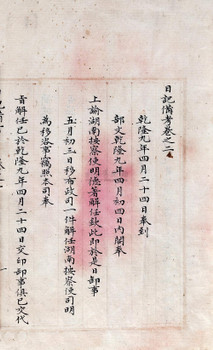 日記備考卷之二
乾隆九年四月二十四日奉到
部文乾隆九年四月初四日內閣奉
上諭湖南按察使明德著解任欽此即於是日卸事
五月初三日移布政司一件解任湖南按察使司明
為移咨事竊照本司奉
旨解任已於乾隆九年四月二十四日交印卸事俱已交代